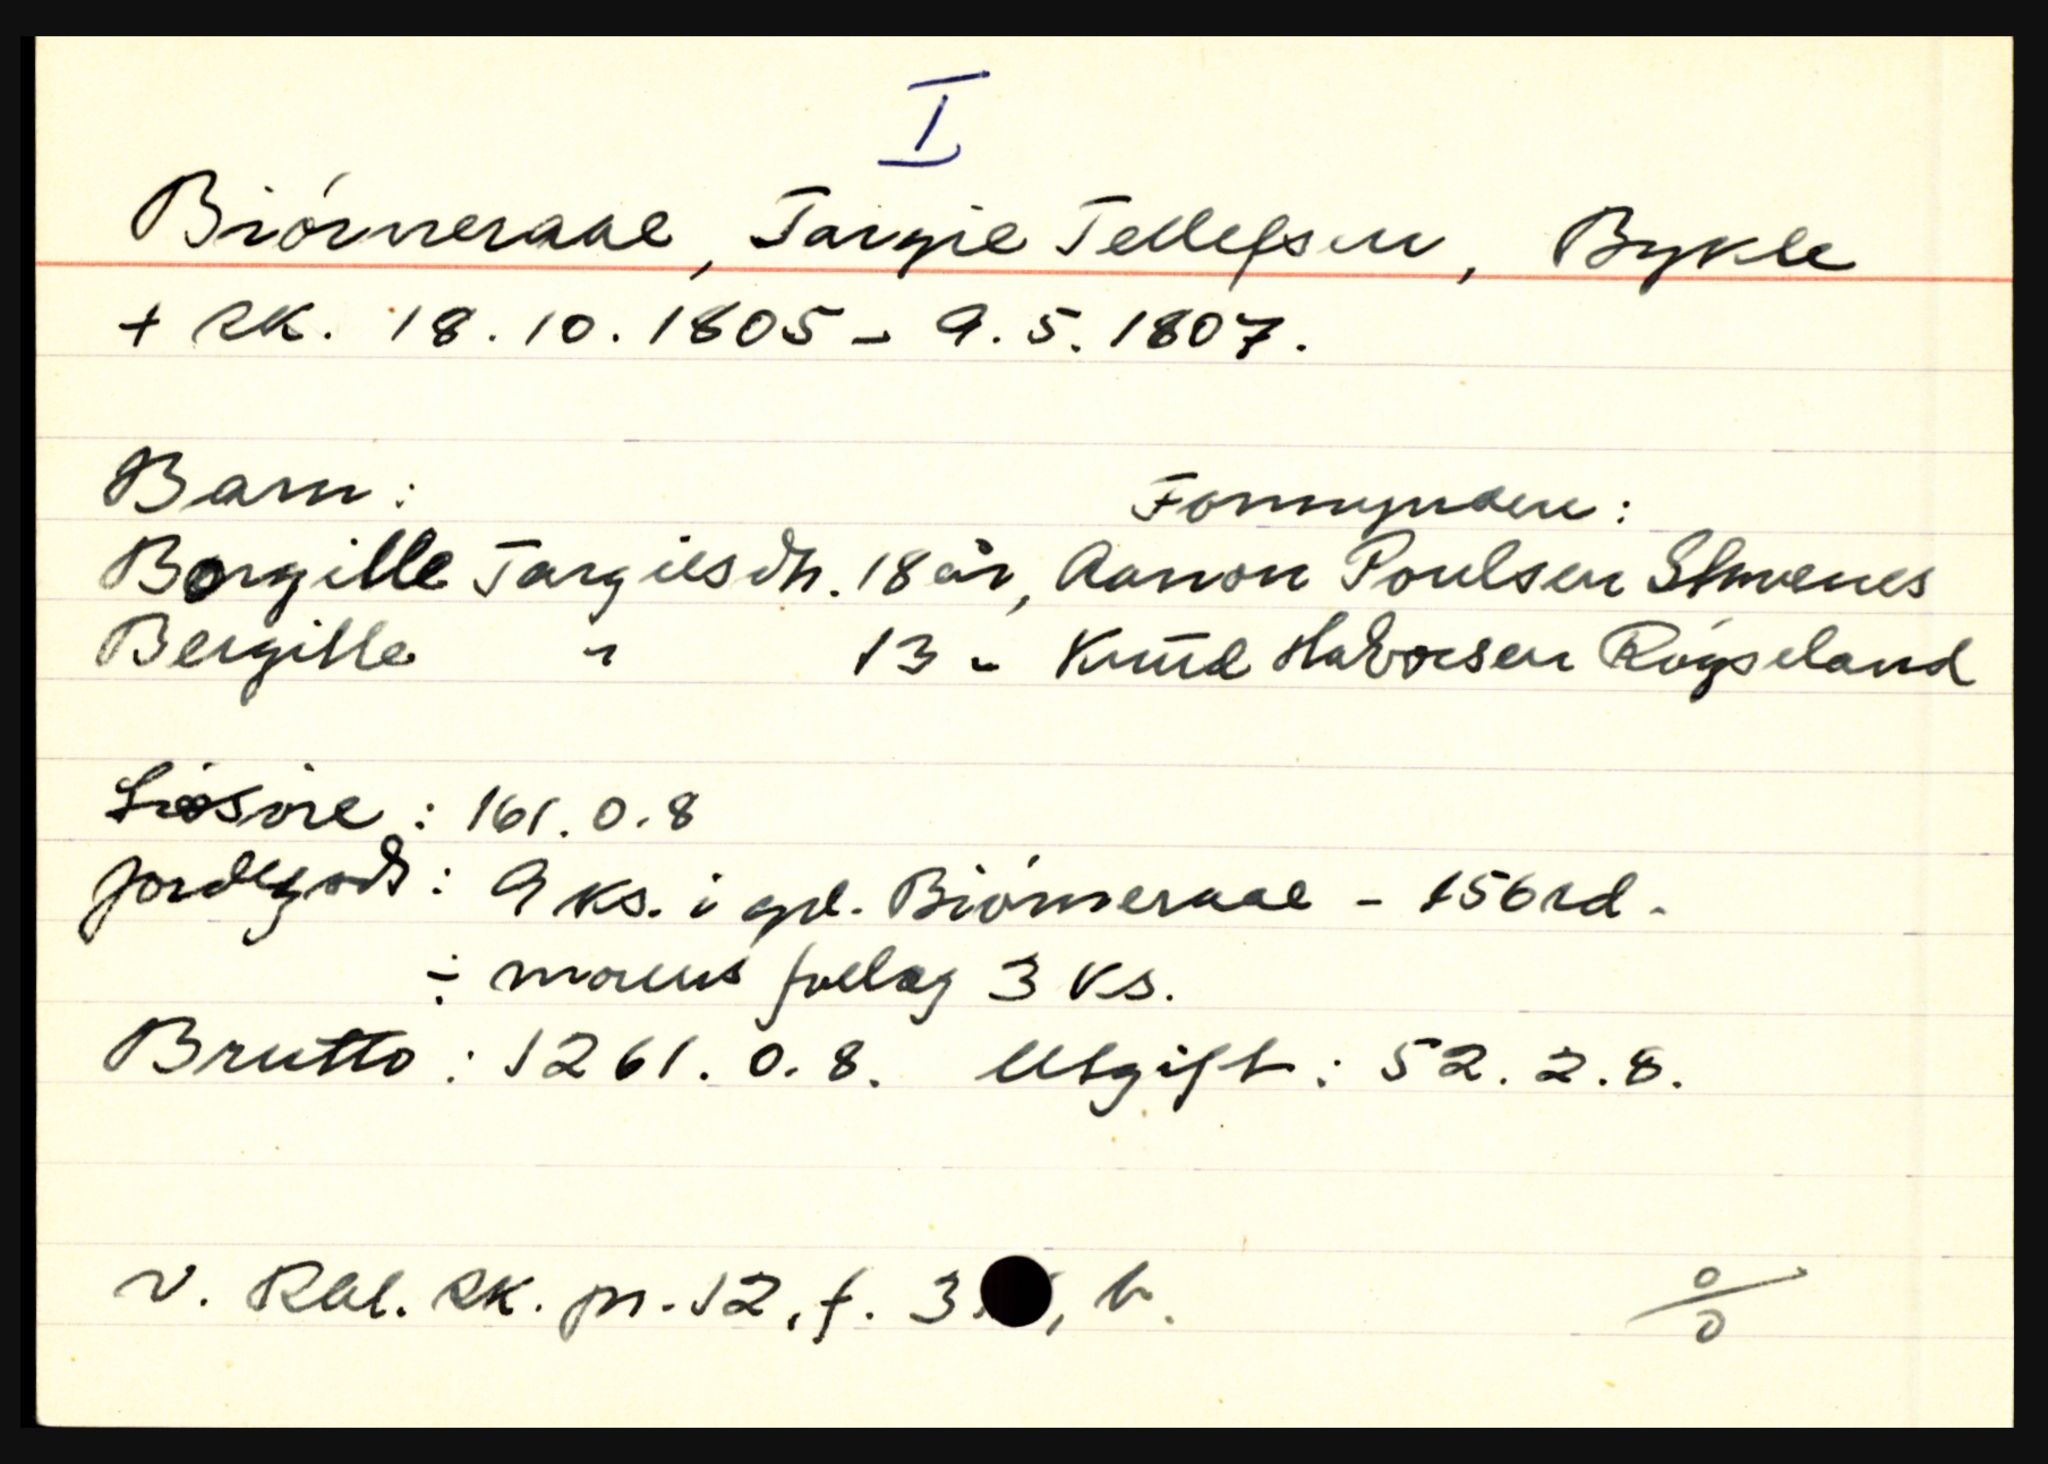 I
Biórneraae, Targie Tellefsen, Bykle
+ RK. 18.10.1805 - 9.5.1807.
Barn: Formyndere:
Borgille Targiesdtr. 18 år, Aanon Poulsen
Bergille " 13 " Knud Halvorsen Röyseland
Lösöre: 161.0.8
Jordegods: 9 ks. i gd. Biórneraae - 156 rd.
÷ morens follog 3 ks.
Brutto: 1261.0.8. Utgift: 52.2.8.
v. Rbl. RK. pr. 12, f. 3 , b.
%